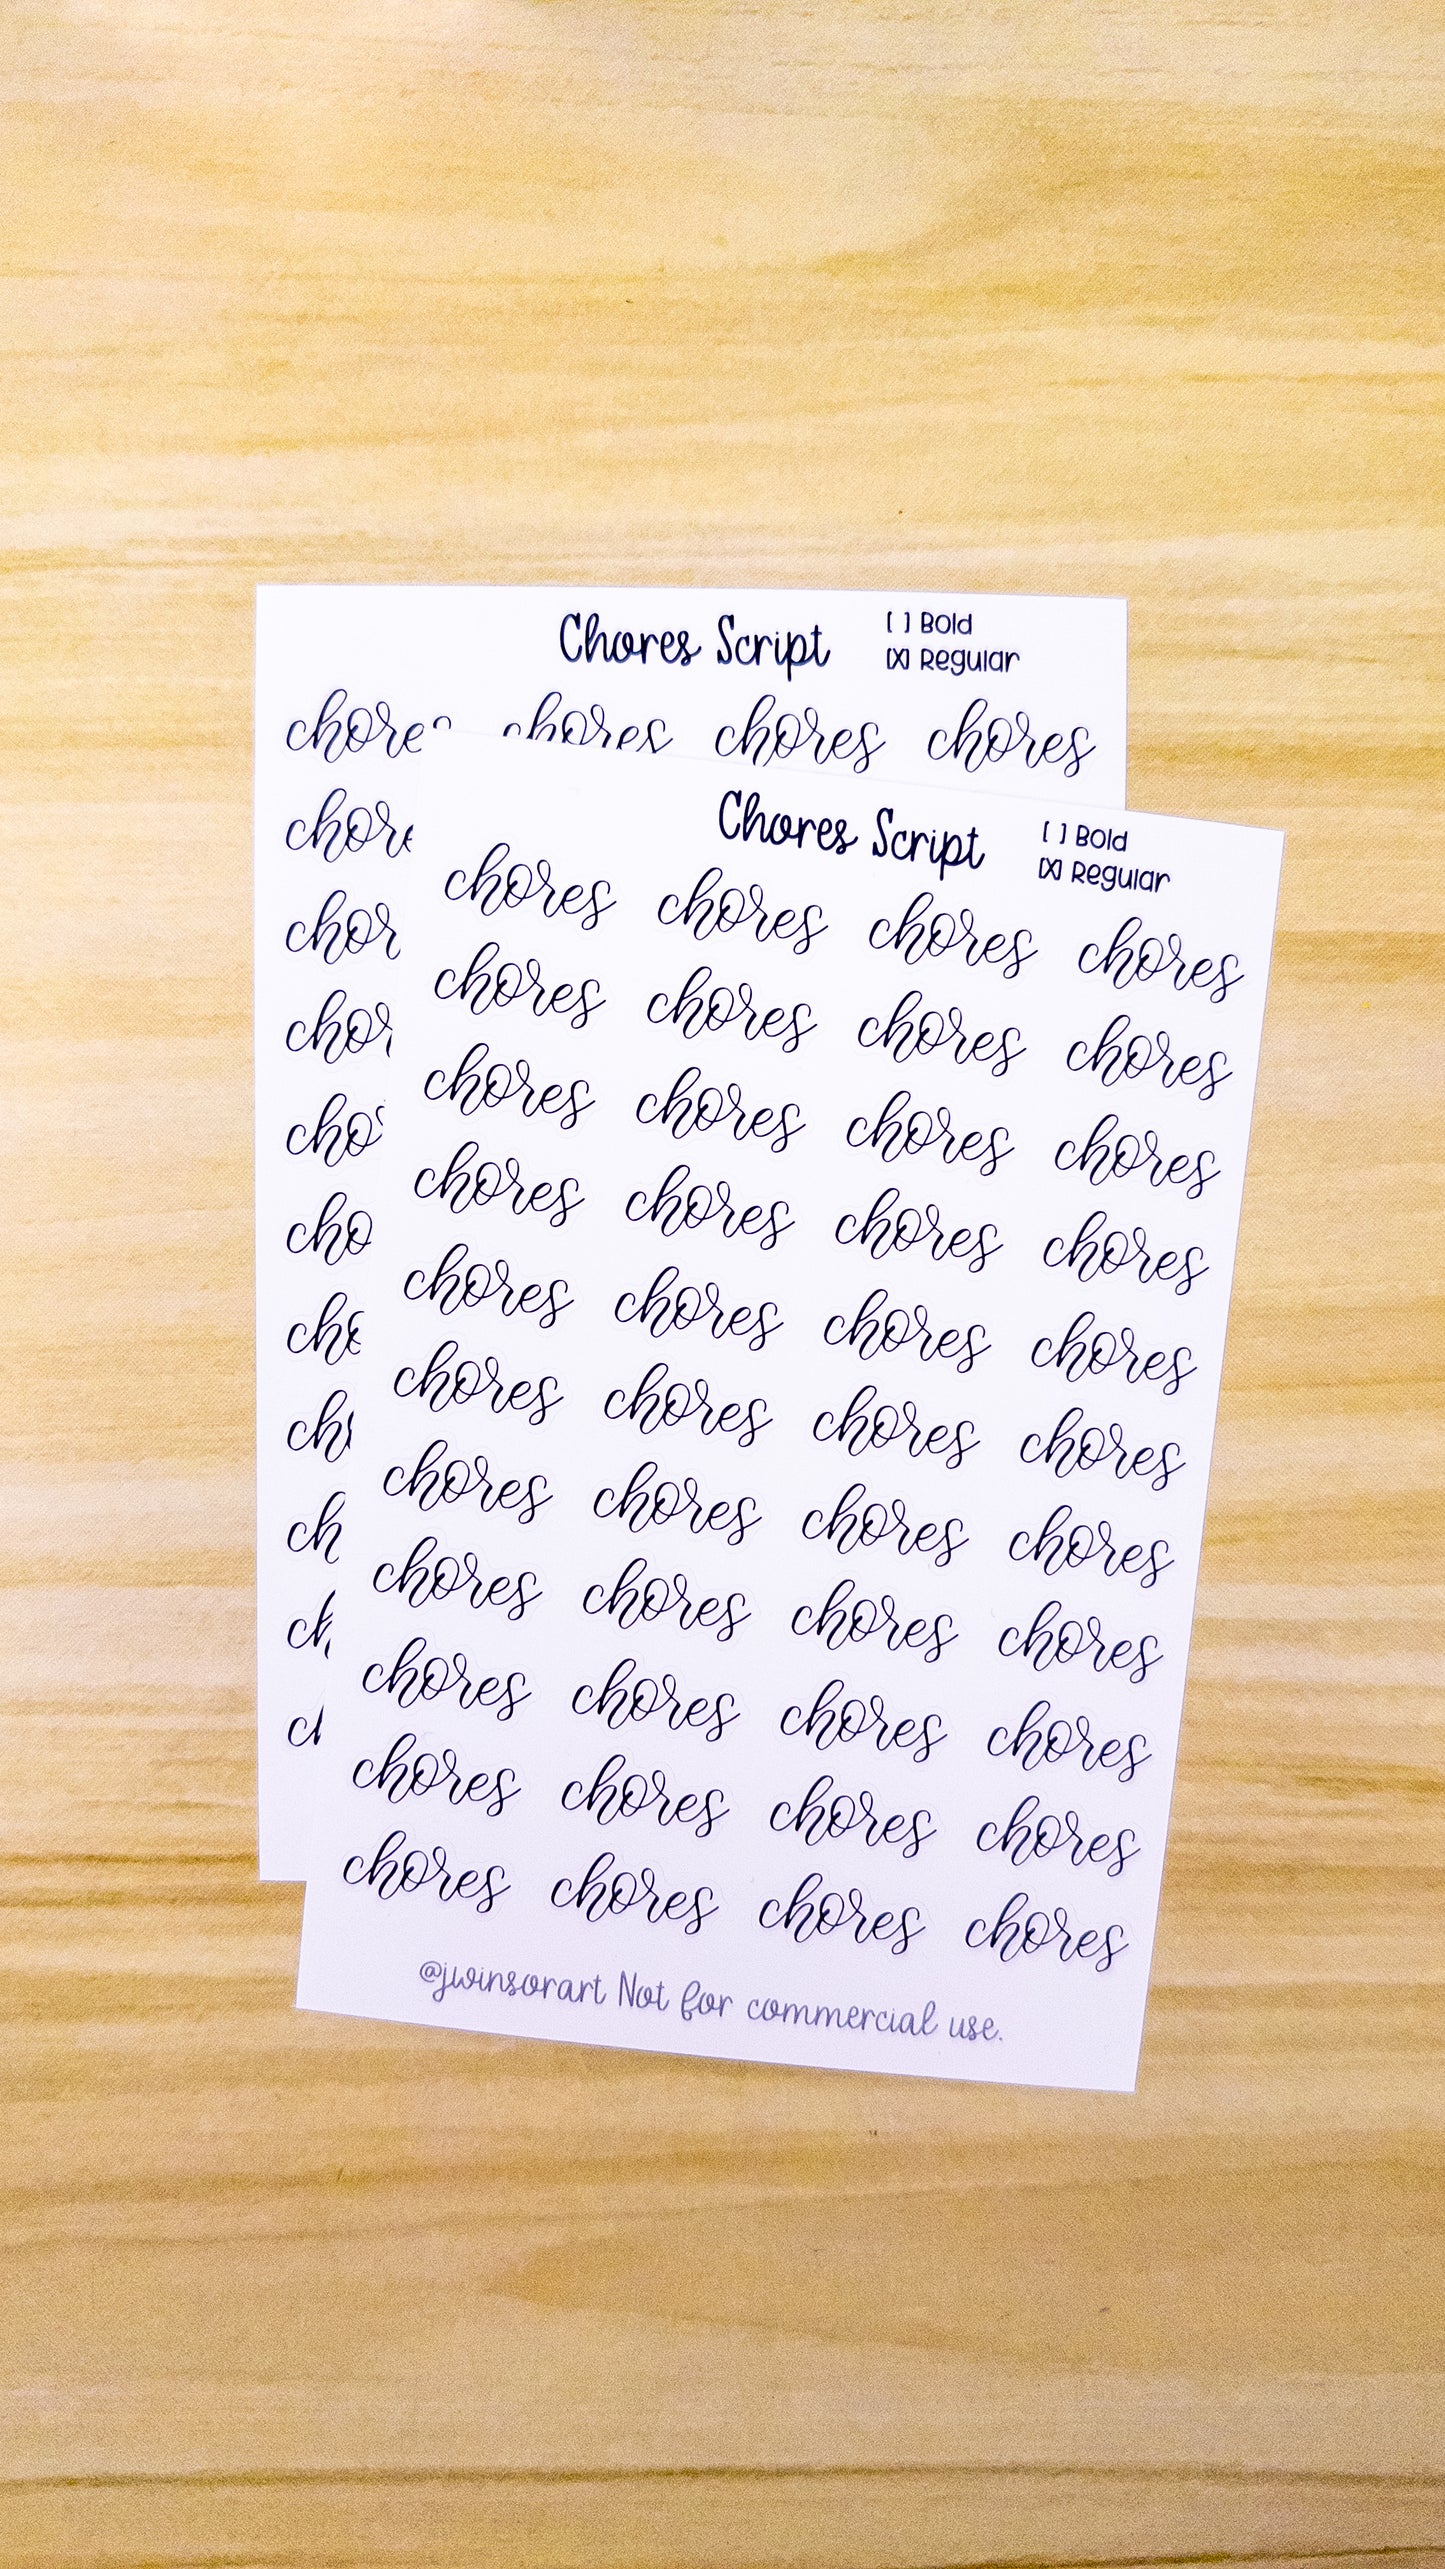 Chores Script
[ ] Bold
[X] Regular
chores chores chores
Chores Script
[ ] Bold
[X] Regular
chores chores chores chores
chores chores chores chores
chores chores chores chores
chores chores chores chores
chores chores chores chores
chores chores chores chores
chores chores chores chores
chores chores chores chores
chores chores chores chores
chores chores chores chores
chores chores chores chores
@jwinsorart Not for commercial use.